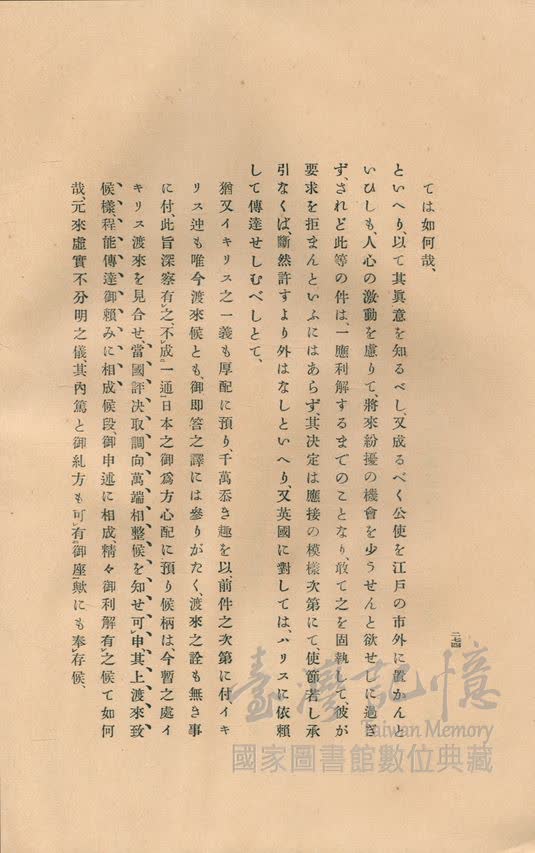 ては如何哉、
といへり、以て其眞意を知るべし、又成るべく公使を江戸の市外に置かんと
いひしも、人心の激動を慮りて、將來紛擾の機會を少うせんと欲せしに過ぎ
ず、されど此等の件は、一應利解するまでのことなり、敢て之を固執して彼が
要求を拒まんといふにはあらず、其決定は應接の模樣次第にて、使節若し承
引なくば、斷然許すより外はなしといへり、又英國に對しては、ハリスに依頼
して傳達せしむべしとて、
猶又イキリス之一義も厚配に預り、千萬忝き趣を以、前件之次第に付、イキ
リス迚も唯今渡來候とも、御即答之譯には參りがたく、渡來之詮も無き事
に付、此旨深察有㆑之、不㆑成㆓一通㆒日本之御爲方心配に預り候柄は、今暫之處イ
キリス渡來を見合せ、當國評決取調向萬端相整候を知せ可㆑申、其上渡來致
候樣、程能傳達御賴みに相成候段御申述に相成、精々御利解有㆑之候て如何
哉、元來虛實不分明之儀、其內篤と御糺方も可㆑有㆓御座㆒歟にも奉㆑存候、
二七四
臺灣記憶
Taiwan Memory
國家圖書館數位典藏